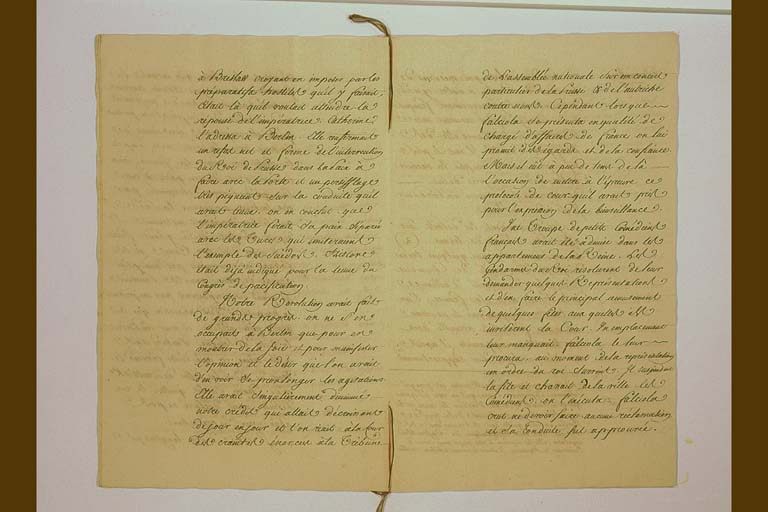 à Breslaw croyant en imposer par les
préparatifs hostiles qu'il y faisait,
c'était là qu'il voulait attendre la
réponse de l'impératrice. Catherine
l'adressa à Berlin. Elle renfermait
un refus net et formel de l'intervention
du Roi de Prusse dans la Paix à
faire avec la Porte et un persifflage
très piquant sur la conduite qu'il
avait tenue. on en conclut que
l'impératrice ferait sa paix séparée
avec les Turcs qui imiteraient
l'exemple des Suédois. Sistove
était déjà indiqué pour la tenue du
Congrès de pacification.
Notre Révolution avait fait
de grands progrès. on ne s'en
occupait à Berlin que pour en
montrer de la joie et pour manifester
l'opinion et le désir que l'on avait
d'en voir se prolonger les agitations
Elle avait singulièrement diminué
notre crédit qui allait décroissant
de jour en jour et l'on riait à la Cour
des craintes énoncées à la Tribune
de l'assemblée nationale sur un concert
particulier de la Prusse & de l'autriche
contre nous. Cependant lorsque
falciola se présenta en qualité de
chargé d'affaires de france on lui
promit des égards et de la confiance.
Mais il eut à peu de tems de là
l'occasion de mettre à l'épreuve ce
protocole de Cour qu'il avait pris
pour l'expression de la bienveillance.
Une Troupe de petits Comédiens
français avait été admise dans les
appartemens de la Reine. Les
Gendarmes résolurent de leur
demander quelques Représentations
et d'en faire le principal amusement
de quelques fêtes auxquelles ils
invitèrent la Cour. Un emplacement
leur manquait, falciola le leur
procura. au moment de la représentation
un ordre du roi survint. Il suspendit
la fête et chassait de la ville les
Comédiens. on l'exécuta. falciola
crut ne devoir faire aucune réclamation
et sa conduite fut approuvée.